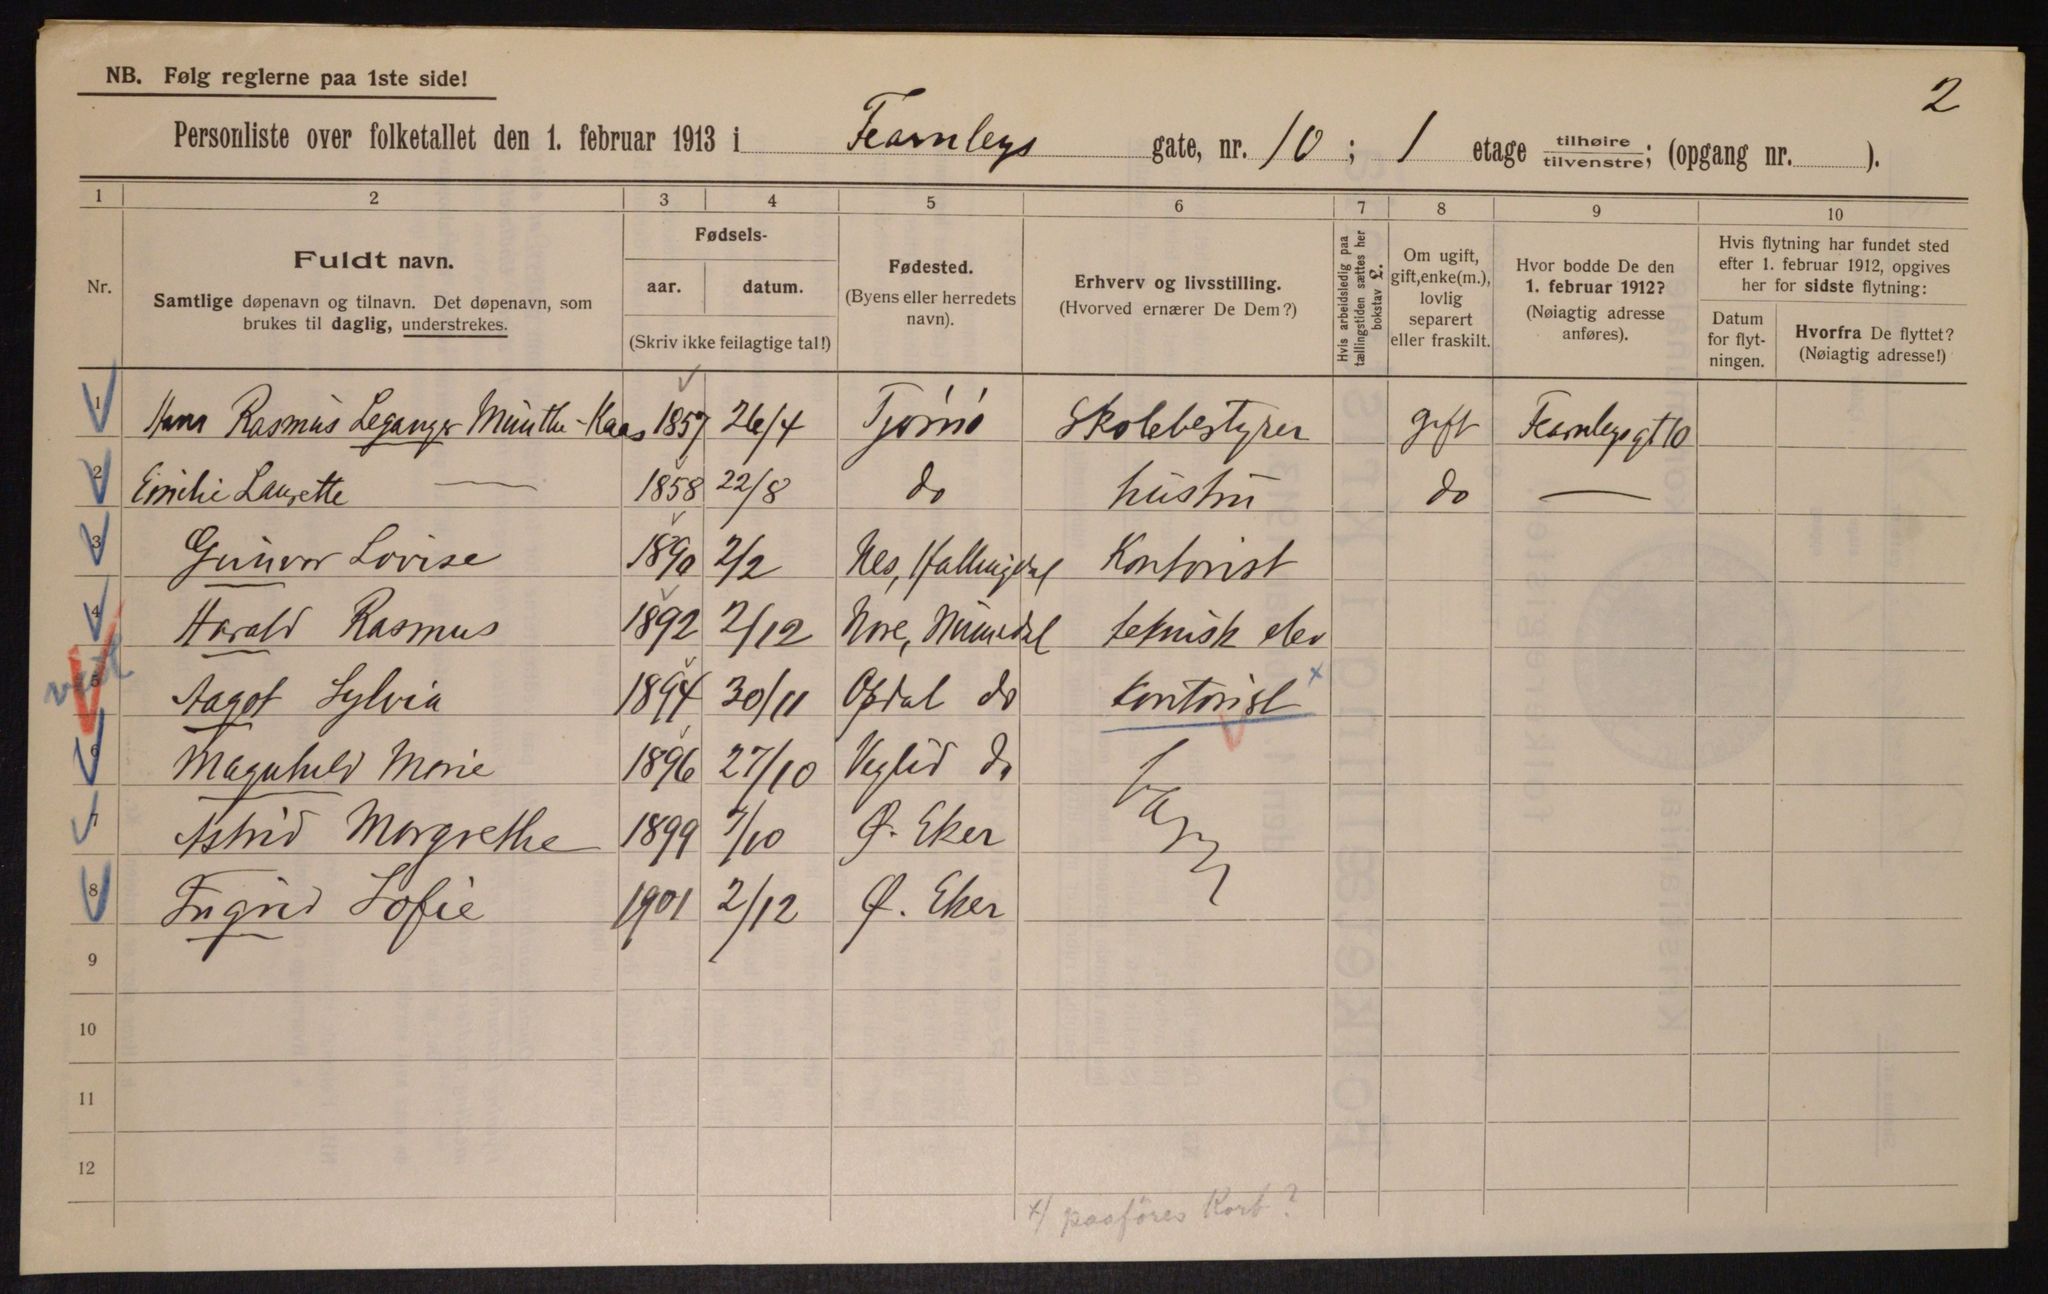 NB. Følg reglerne paa 1ste side!
2
Personliste over folketallet den 1. februar 1913 i Fearnleys gate, nr. 10; 1 etage tilhøire tilvenstre; (opgang nr. ).
1 2 3 4 5 6 7 8 9 10
Nr.
Fuldt navn.
Samtlige døpenavn og tilnavn. Det døpenavn, som
brukes til daglig, understrekes.
Fødsels-
aar. datum.
(Skriv ikke feilagtige tal!)
Fødested.
(Byens eller herredets
navn).
Erhverv og livsstilling.
(Hvorved ernærer De Dem?)
Hvis arbeidsledig paa
tællingstiden sættes her
bokstav L.
Om ugift,
gift, enke(m.),
lovlig
separert
eller fraskilt.
Hvor bodde De den
1. februar 1912?
(Nøiagtig adresse
anføres).
Hvis flytning har fundet sted
efter 1. februar 1912, opgives
her for sidste flytning:
Datum
for flyt-
ningen.
Hvorfra De flyttet?
(Nøiagtig adresse!)
1 Hans Rasmus Leganger Munthe-Kaas 1857 26/4 Tjømø Skolebestyrer gift Fearnleysgt 10
2 Emilie Laurette — 1858 22/8 do hustru do —
3 Gunvor Lovise 1890 2/2 Nes, Hallingdal Kontorist
4 Harald Rasmus 1892 2/12 Nore, Numedal teknisk elev
5 Aagot Sylvia 1894 30/11 Opdal do kontorist x
6 Magnhild Marie 1896 27/10 Veglid do barn
7 Astrid Margrethe 1899 7/10 Ø. Eker
8 Ingrid Sofie 1901 2/12 Ø. Eker
9
10
11
12
x/ paaføres Kort?